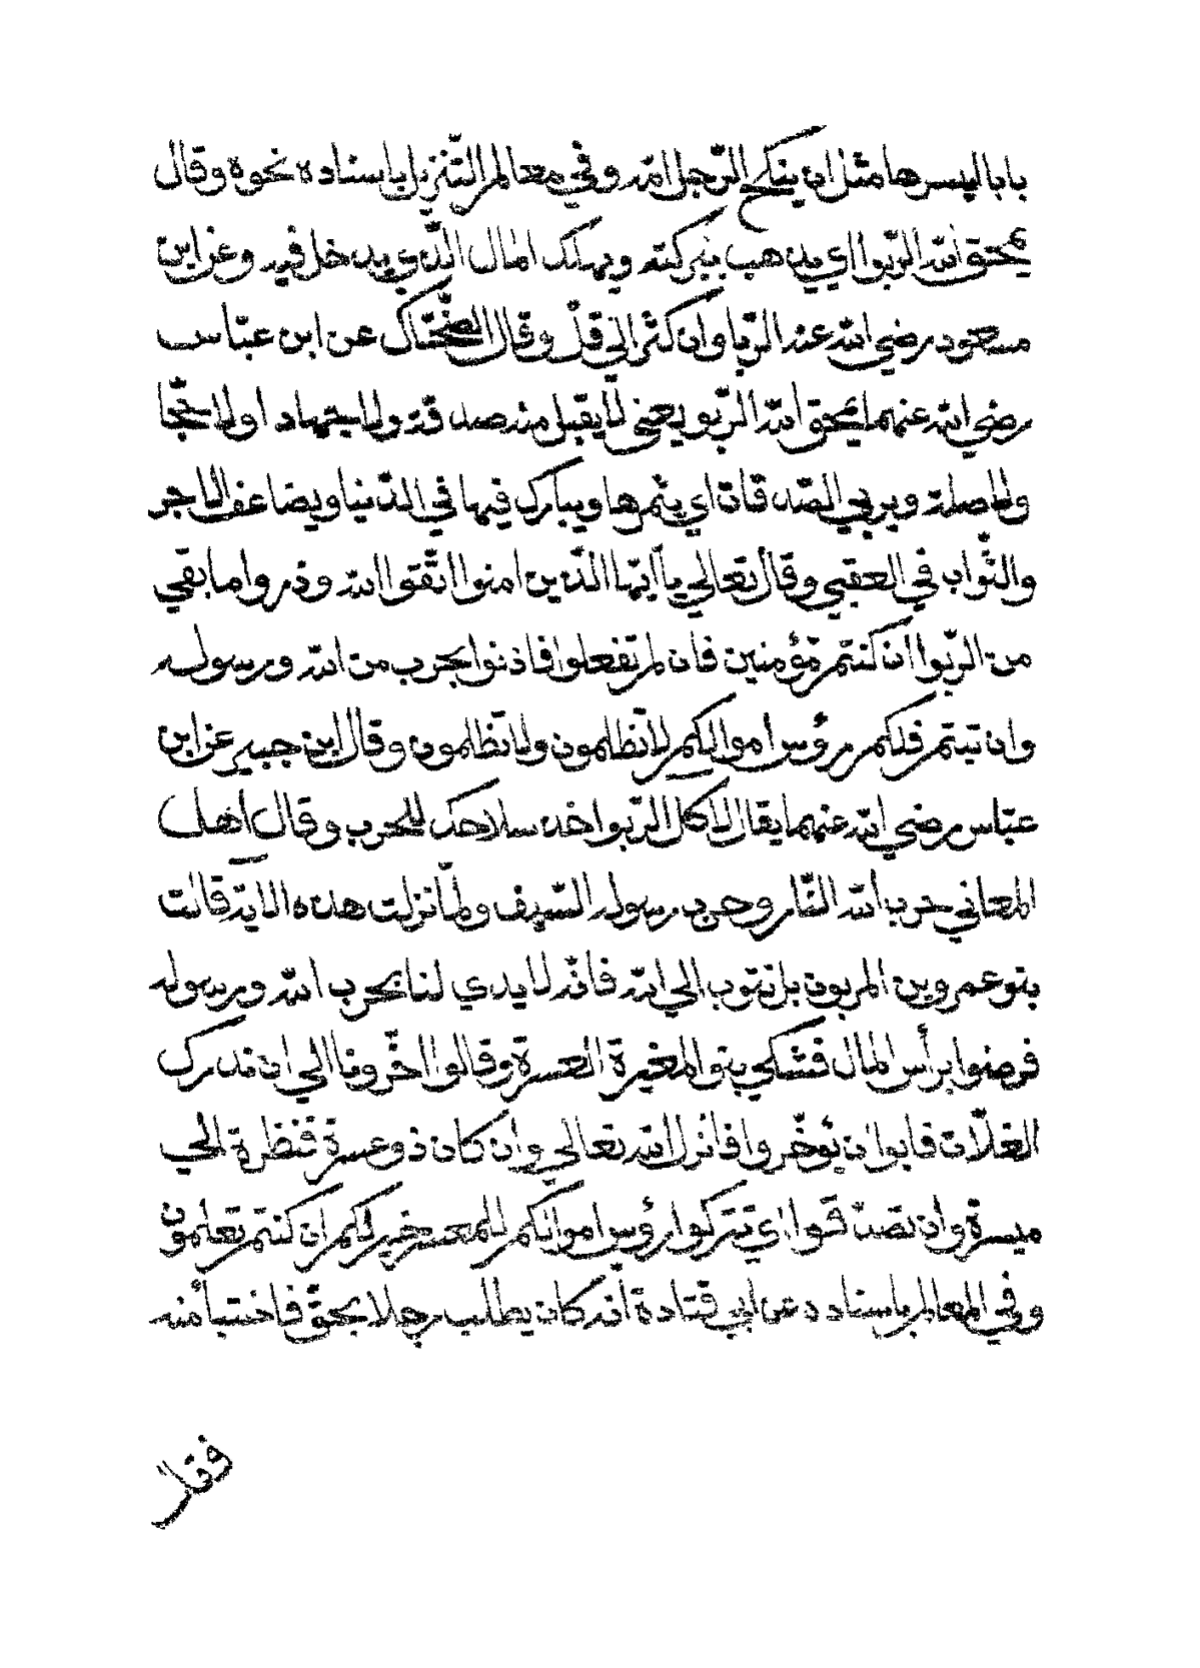 بابا اليسرها مثل ان ينكح الرّجل امّه وفي معالم التّنزيل باسناده نحوه وقال
يمحق الله الرّبوا اي يذهب ببركته ويهلك المال الّذي يدخل فيه وعن ابن
مسعود رضي الله عنه الرّبا وان كثر الى قلّ وقال الضّحّاك عن ابن عبّاس
رضي الله عنهما يمحق الله الرّبو يعني لا يقبل منه صدقة ولا جهاد او لا حجّا
ولا صلة ويربي الصّدقات اي يثمرها ويبارك فيها في الدّنيا ويضاعف الاجر
والثّواب في العقبي وقال تعالي يا ايّها الّذين امنوا اتّقوا الله وذروا ما بقي
من الرّبوا ان كنتم مّؤمنين فان لم تفعلوا فاذنوا بحرب من الله ورسوله
وان تبتم فلكم رؤس اموالكم لا تظلمون ولا تظلمون وقال ابن جبير عن ابن
عبّاس رضي الله عنهما يقال لاكل الرّبوا خذ سلاحك للحرب وقال اهل
المعاني حرب الله النّار وحرب رسوله السّيف ولمّا نزلت هذه الاية قالت
بنو عمرو بن المربون بل نتوب الي الله فانّه لا يدي لنا بحرب الله ورسوله
فرضوا برأس المال فشكي بنو المغيرة العسرة وقالوا اخّرونا الي ان ندرك
الغلّات فابوا ان يؤخّروا فانزل الله تعالي وان كان ذو عسرة فنظرة الي
ميسرة وان تصدّقوا اي تتركوا رؤس اموالكم للمعسر خير لكم ان كنتم تعلمون
وفي المعالم باسناده عن ابي قتادة انّه كان يطلب رجلا بحقّ فاختبأ منه
فقال